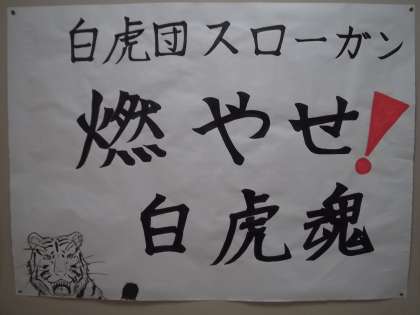 白虎団スローガン
燃やせ!
白虎魂